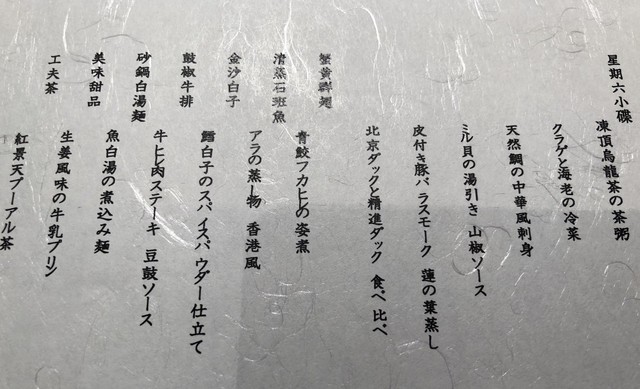 星期六小碟
凍頂烏龍茶の茶粥
クラゲと海老の冷菜
天然鯛の中華風刺身
ミル貝の湯引き 山椒ソース
皮付き豚バラスモーク 蓮の葉蒸し
北京ダックと精進ダック 食べ比べ
蟹黄群翅
青鮫フカヒレの姿煮
清蒸石斑魚
アラの蒸し物 香港風
金沙白子
鱈白子のスパイスパウダー仕立て
鼓椒牛排
牛ヒレ肉ステーキ 豆鼓ソース
砂鍋白湯麺
魚白湯の煮込み麺
美味甜品
生姜風味の牛乳プリン
工夫茶
紅景天プーアル茶